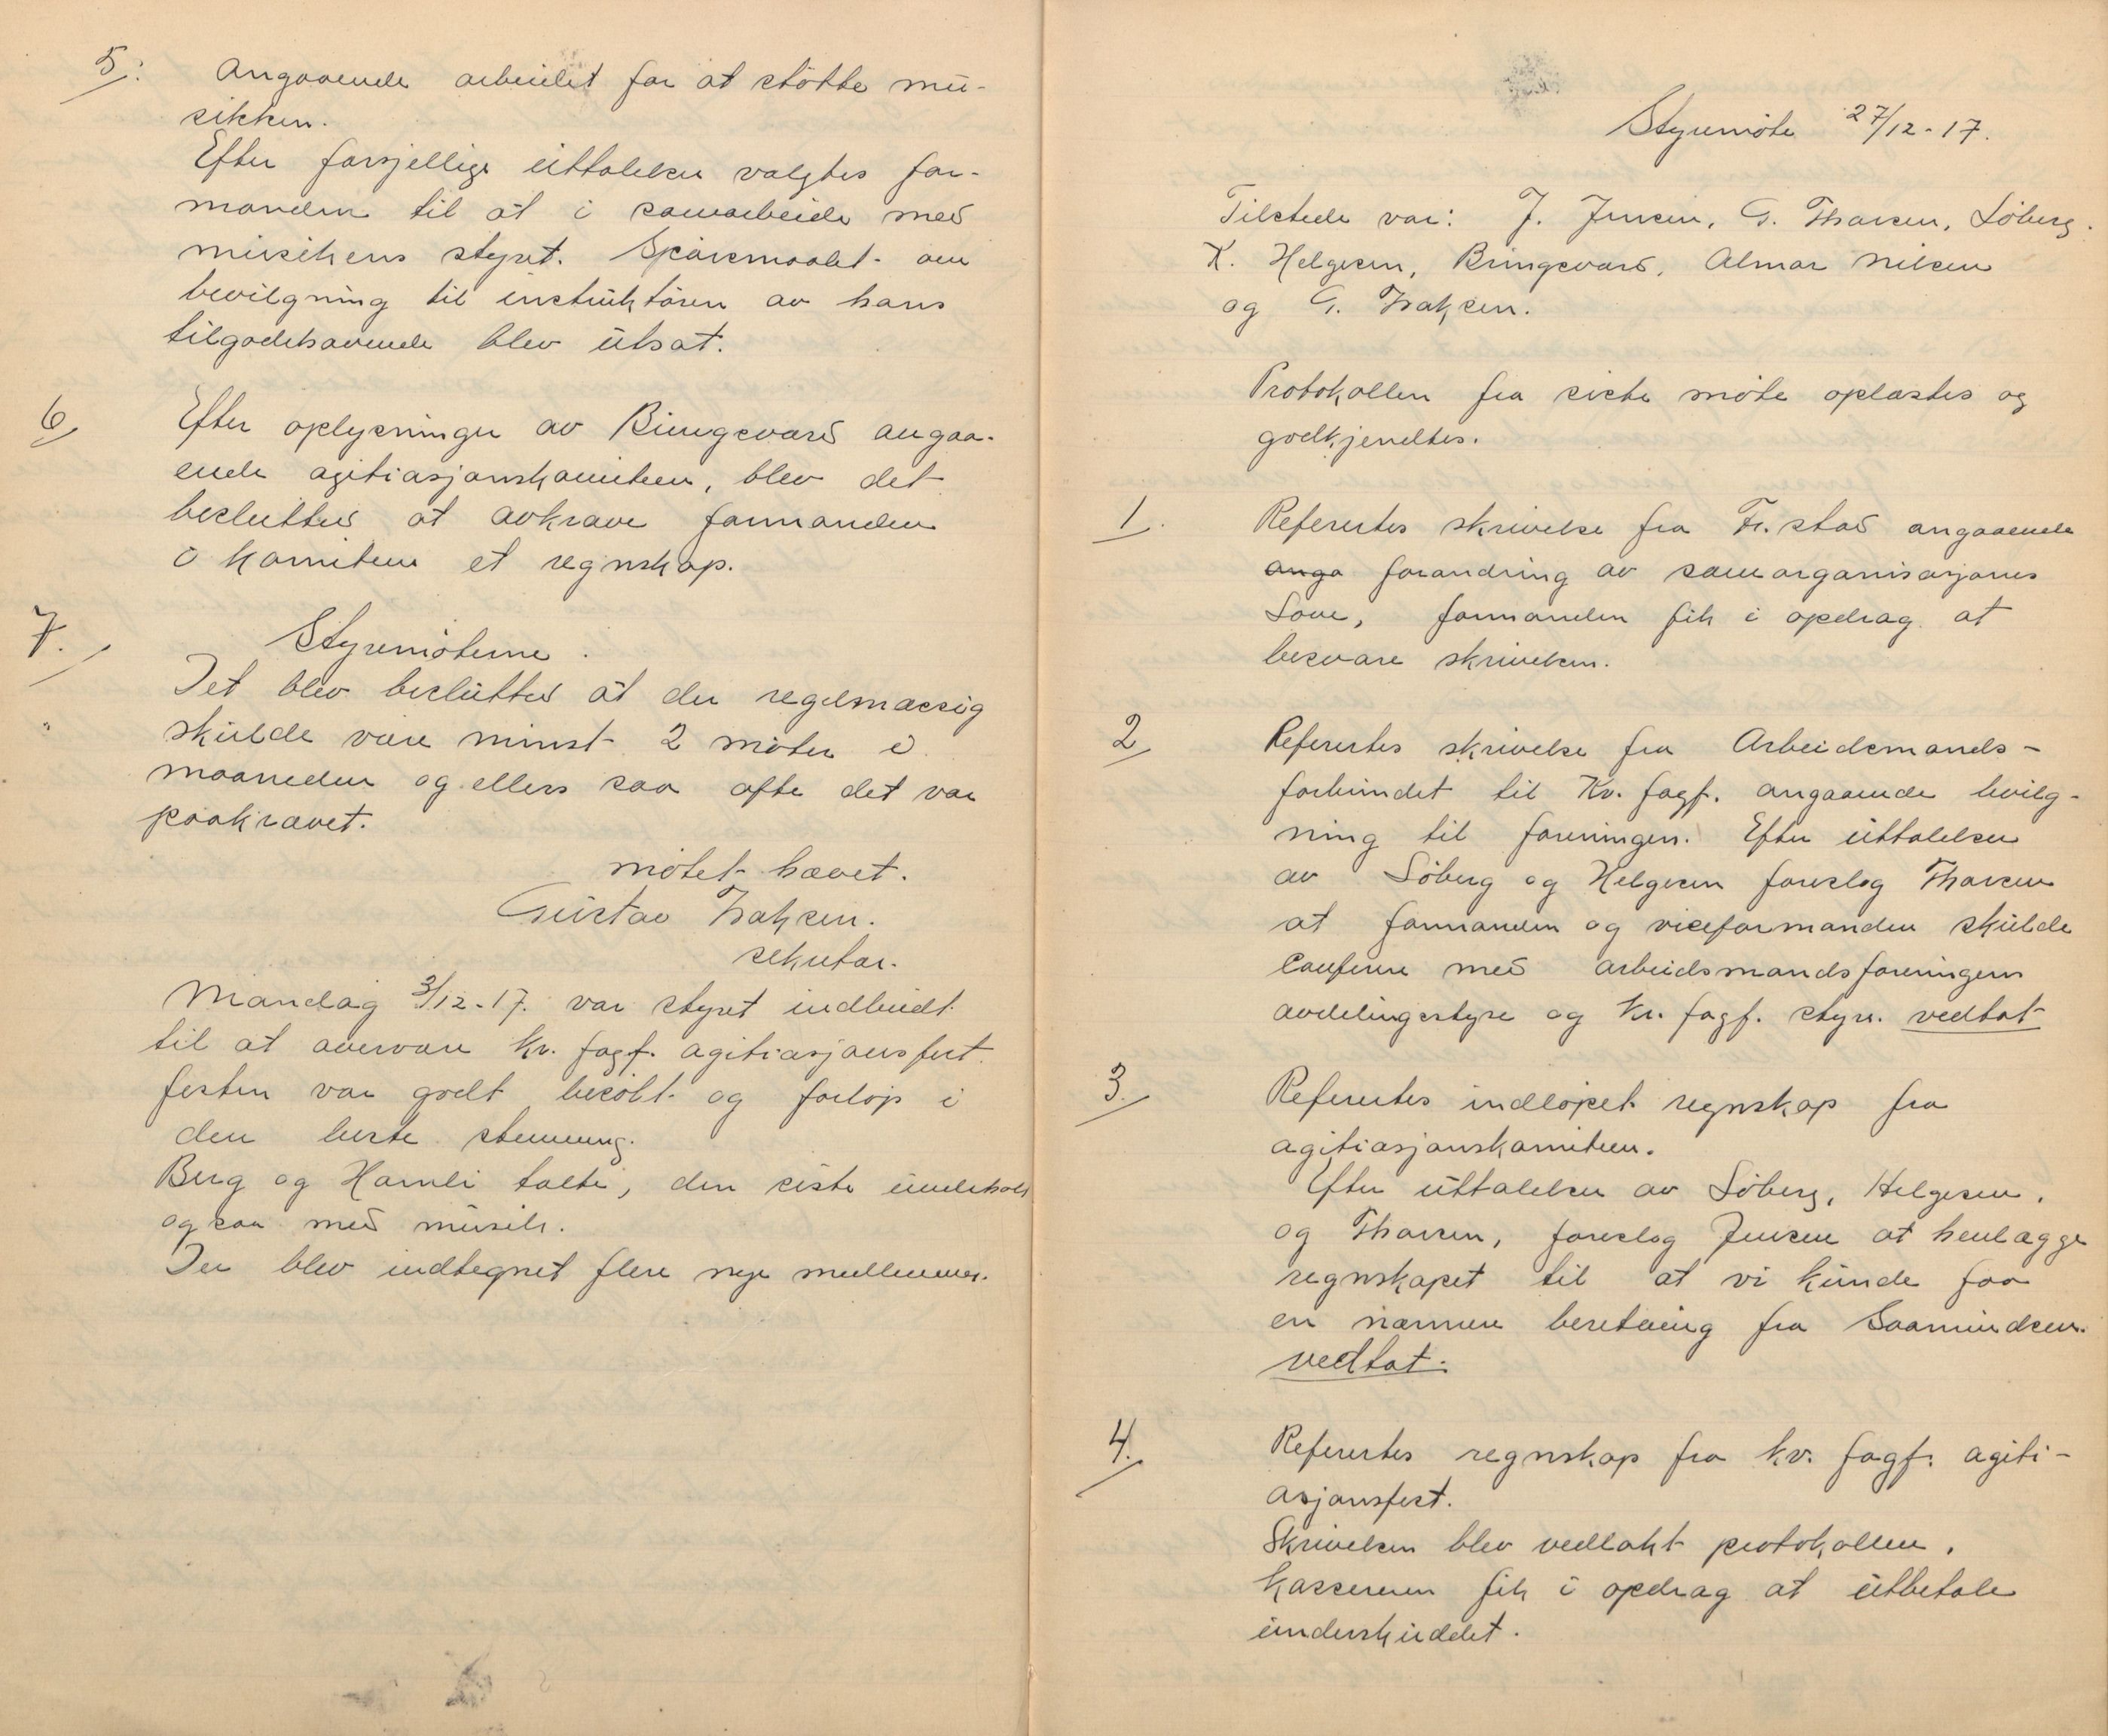 5: Angaaende arbeidet for at støtte mu-
sikken.
Efter forsjellige uttalelser valgtes for-
manden til at i samarbeide med
musikens styret. Spørsmaalet om
bevilgning til instruktøren av hans
tilgodehavende blev utsat.
6 Efter oplysninger av Bringsværd angaa-
ende agitiasjonskomiteen, blev det
beslutted at avkræve formanden
i komiteen et regnskap.
7. Styremøterne.
Det blev beslutted at der regelmæssig
skulde være minst 2 møter i
maaneden og ellers saa ofte det var
paakrævet.
møtet hævet.
Gustav Isaksen.
sekretær.
Mandag 3/12-17. var styret indbudt
til at overvære kv. fagf. agitiasjonsfest.
festen var godt besøkt og forløp i
den beste stemning.
Berg og Hamli talte, den siste underholt
ogsaa med musik.
Der blev indtegnet flere nye medlemmer.
Styremøte 27/12-17.
Tilstede var: J. Jensen, G. Thorsen, Søberg.
K. Helgesen, Bringsværd, Almar Nilsen
og G. Isaksen.
Protokollen fra siste møte oplæstes og
godkjendtes.
1. Refertes skrivelse fra Fr.stad angaaende
anga forandring av samorganisasjones
Love, formanden fik i opdrag at
besvare skrivelsen.
2 Refertes skrivelse fra Arbeidsmands-
forbundet til Kv. fagf. angaaende bevilg-
ning til foreningen. Efter uttalelser
av Søberg og Helgesen foreslog Thorsen
at formanden og viseformanden skulde
konferere med arbeidsmandsforeningens
avdelingsstyre og Kv. fagf. styre. vedtat
3. Refertes indløpet regnskap fra
agitiasjonskomiteen.
Efter uttalelser av Søberg, Helgesen,
og Thorsen, foreslog Jensen at henlægge
regnskapet til at vi kunde faa
en nærmere beretning fra Saamundsen.
vedtat.
4. Refertes regnskap fra kv. fagf. agiti-
asjonsfest.
Skrivelsen blev vedlakt protokollen.
kassereren fik i opdrag at utbetale
underskuddet.